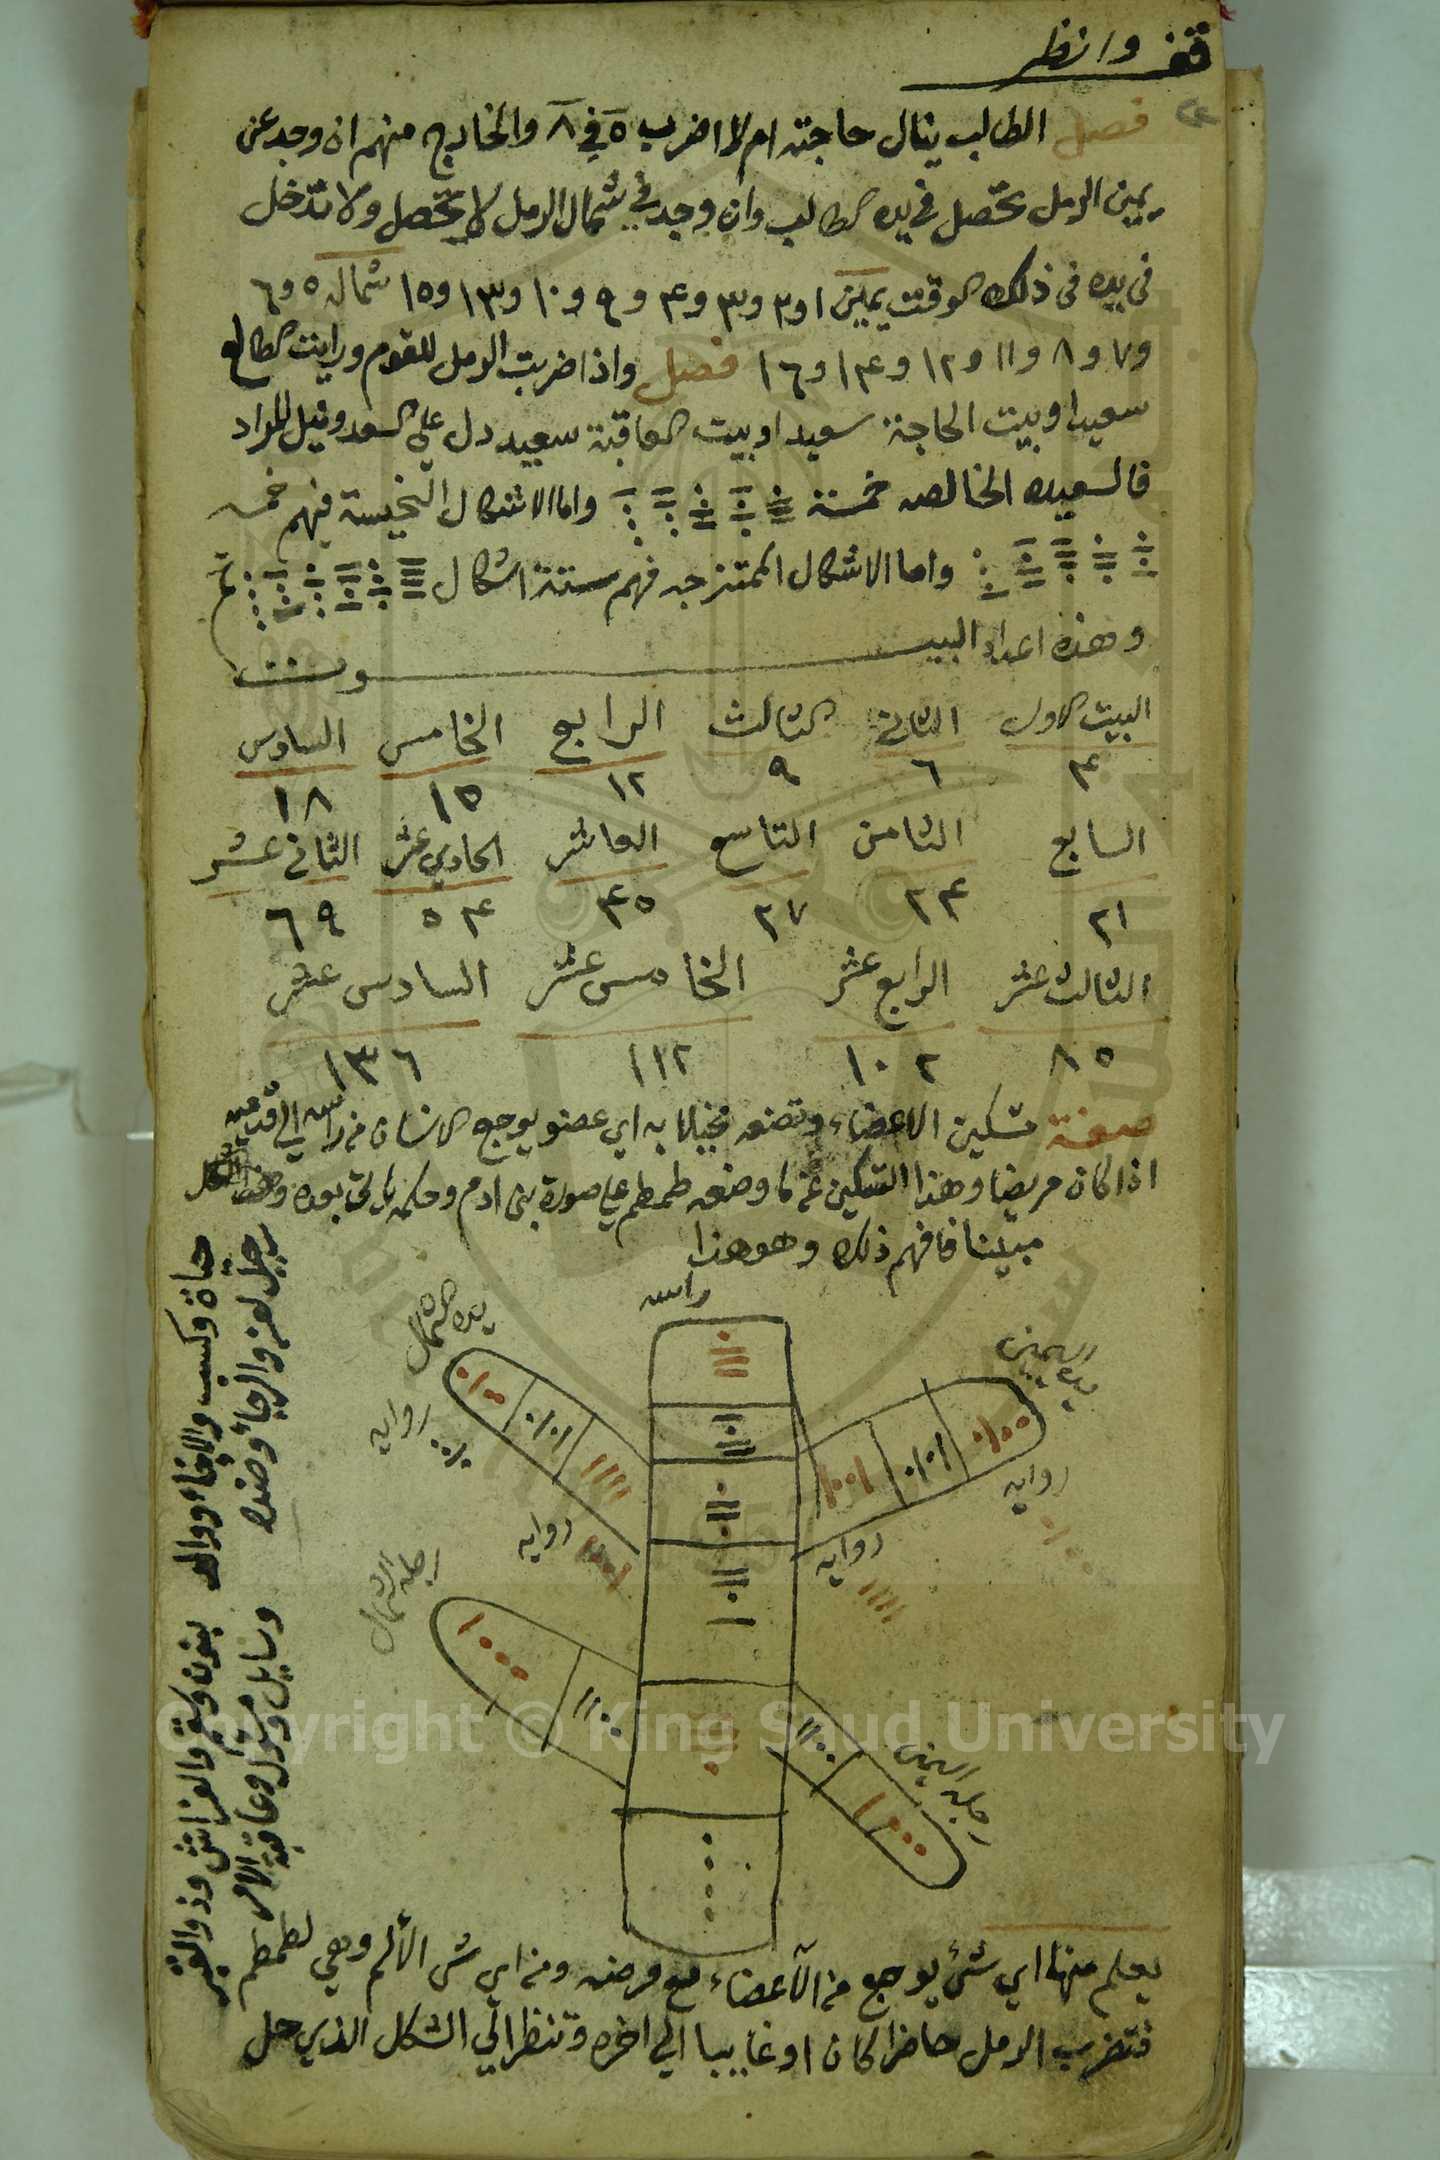 قف وانظر
فصل الطالب ينال حاجته ام لا اضرب ٥ في ٨ والخارج منهم ان وجد عن
يمين الرمل تحصل في يده الطالب وان وجد في شمال الرمل لا تحصل ولا تدخل
في يده في ذلك الوقت يمين ١ و٢ و٣ و٤ و٩ و١٠ و١٣ و١٥ شماله ٥ و٦
و٧ و٨ و١١ و١٢ و١٤ و١٦ فصل واذا ضربت الرمل للقوم ورايت الطالع
سعيدا وبيت الحاجة سعيدا وبيت العاقبة سعيد دل علي السعد ونيل المراد
فالسعيده الخالصه خمسة واما الاشكال النحيسة فهم خمسه
واما الاشكال الممتزجه فهم ستة اشكال تم
وهذه اعداد البيت
البيت الاول الثاني الثالث الرابع الخامس السادس
٤ ٦ ٩ ١٢ ١٥ ١٨
السابع الثامن التاسع العاشر الحادي عشر الثاني عشر
٢١ ٢٤ ٢٧ ٤٥ ٥٤ ٦٩
الثالث عشر الرابع عشر الخامس عشر السادس عشر
٨٥ ١٠٢ ١١٢ ١٣٦
صفة تسكين الاعضاء وتصنعه به اي عضو يوجع الانسان من راسه الي قدميه
اذا كان مريضا وهذا التسكين كما وضعه طمطم علي صورة بني ادم وحكمه ياتي بعده
مبينا فافهم ذلك وهو هذا
راسه
يده اليمين
يده الشمال
روايه
روايه
روايه
روايه
رجله الشمال
رجله اليمين
حياة وكسب والاخاء ووالد
رجل لعز والرجا وضده
بنون وسقم والفراش وذو القبر
وسايل مسئول وعاقبة الامر
يعلم منها اي شئ يوجع من الاعضاء مع مرضه ومن اي شي الألم وهي لطمطم
فتضرب الرمل حاضرا كان او غايبا الي اخره وتنظر الي الشكل الذي حل
Copyright © King Saud University
1957